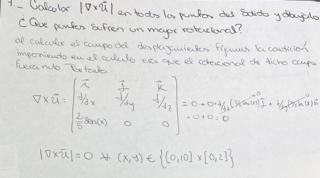 7.- Calcular |∇×ū| en todos los puntos del Sólido y dibujarlo
¿Que puntos sufren un mayor rotacional?
al calcular el campo del desplazamientos fijamos la condición
imponiendo en el calculo era que el rotacional de dicho campo
fuera nulo. Por tanto
i j k
∇×ū = | d/dx d/dy d/dz | = 0 + 0 +
sen(x) 0 0
+0+0 = 0
|∇×ū| = 0 ∀ (x,y) ∈ {[0,10] × [0,2]}